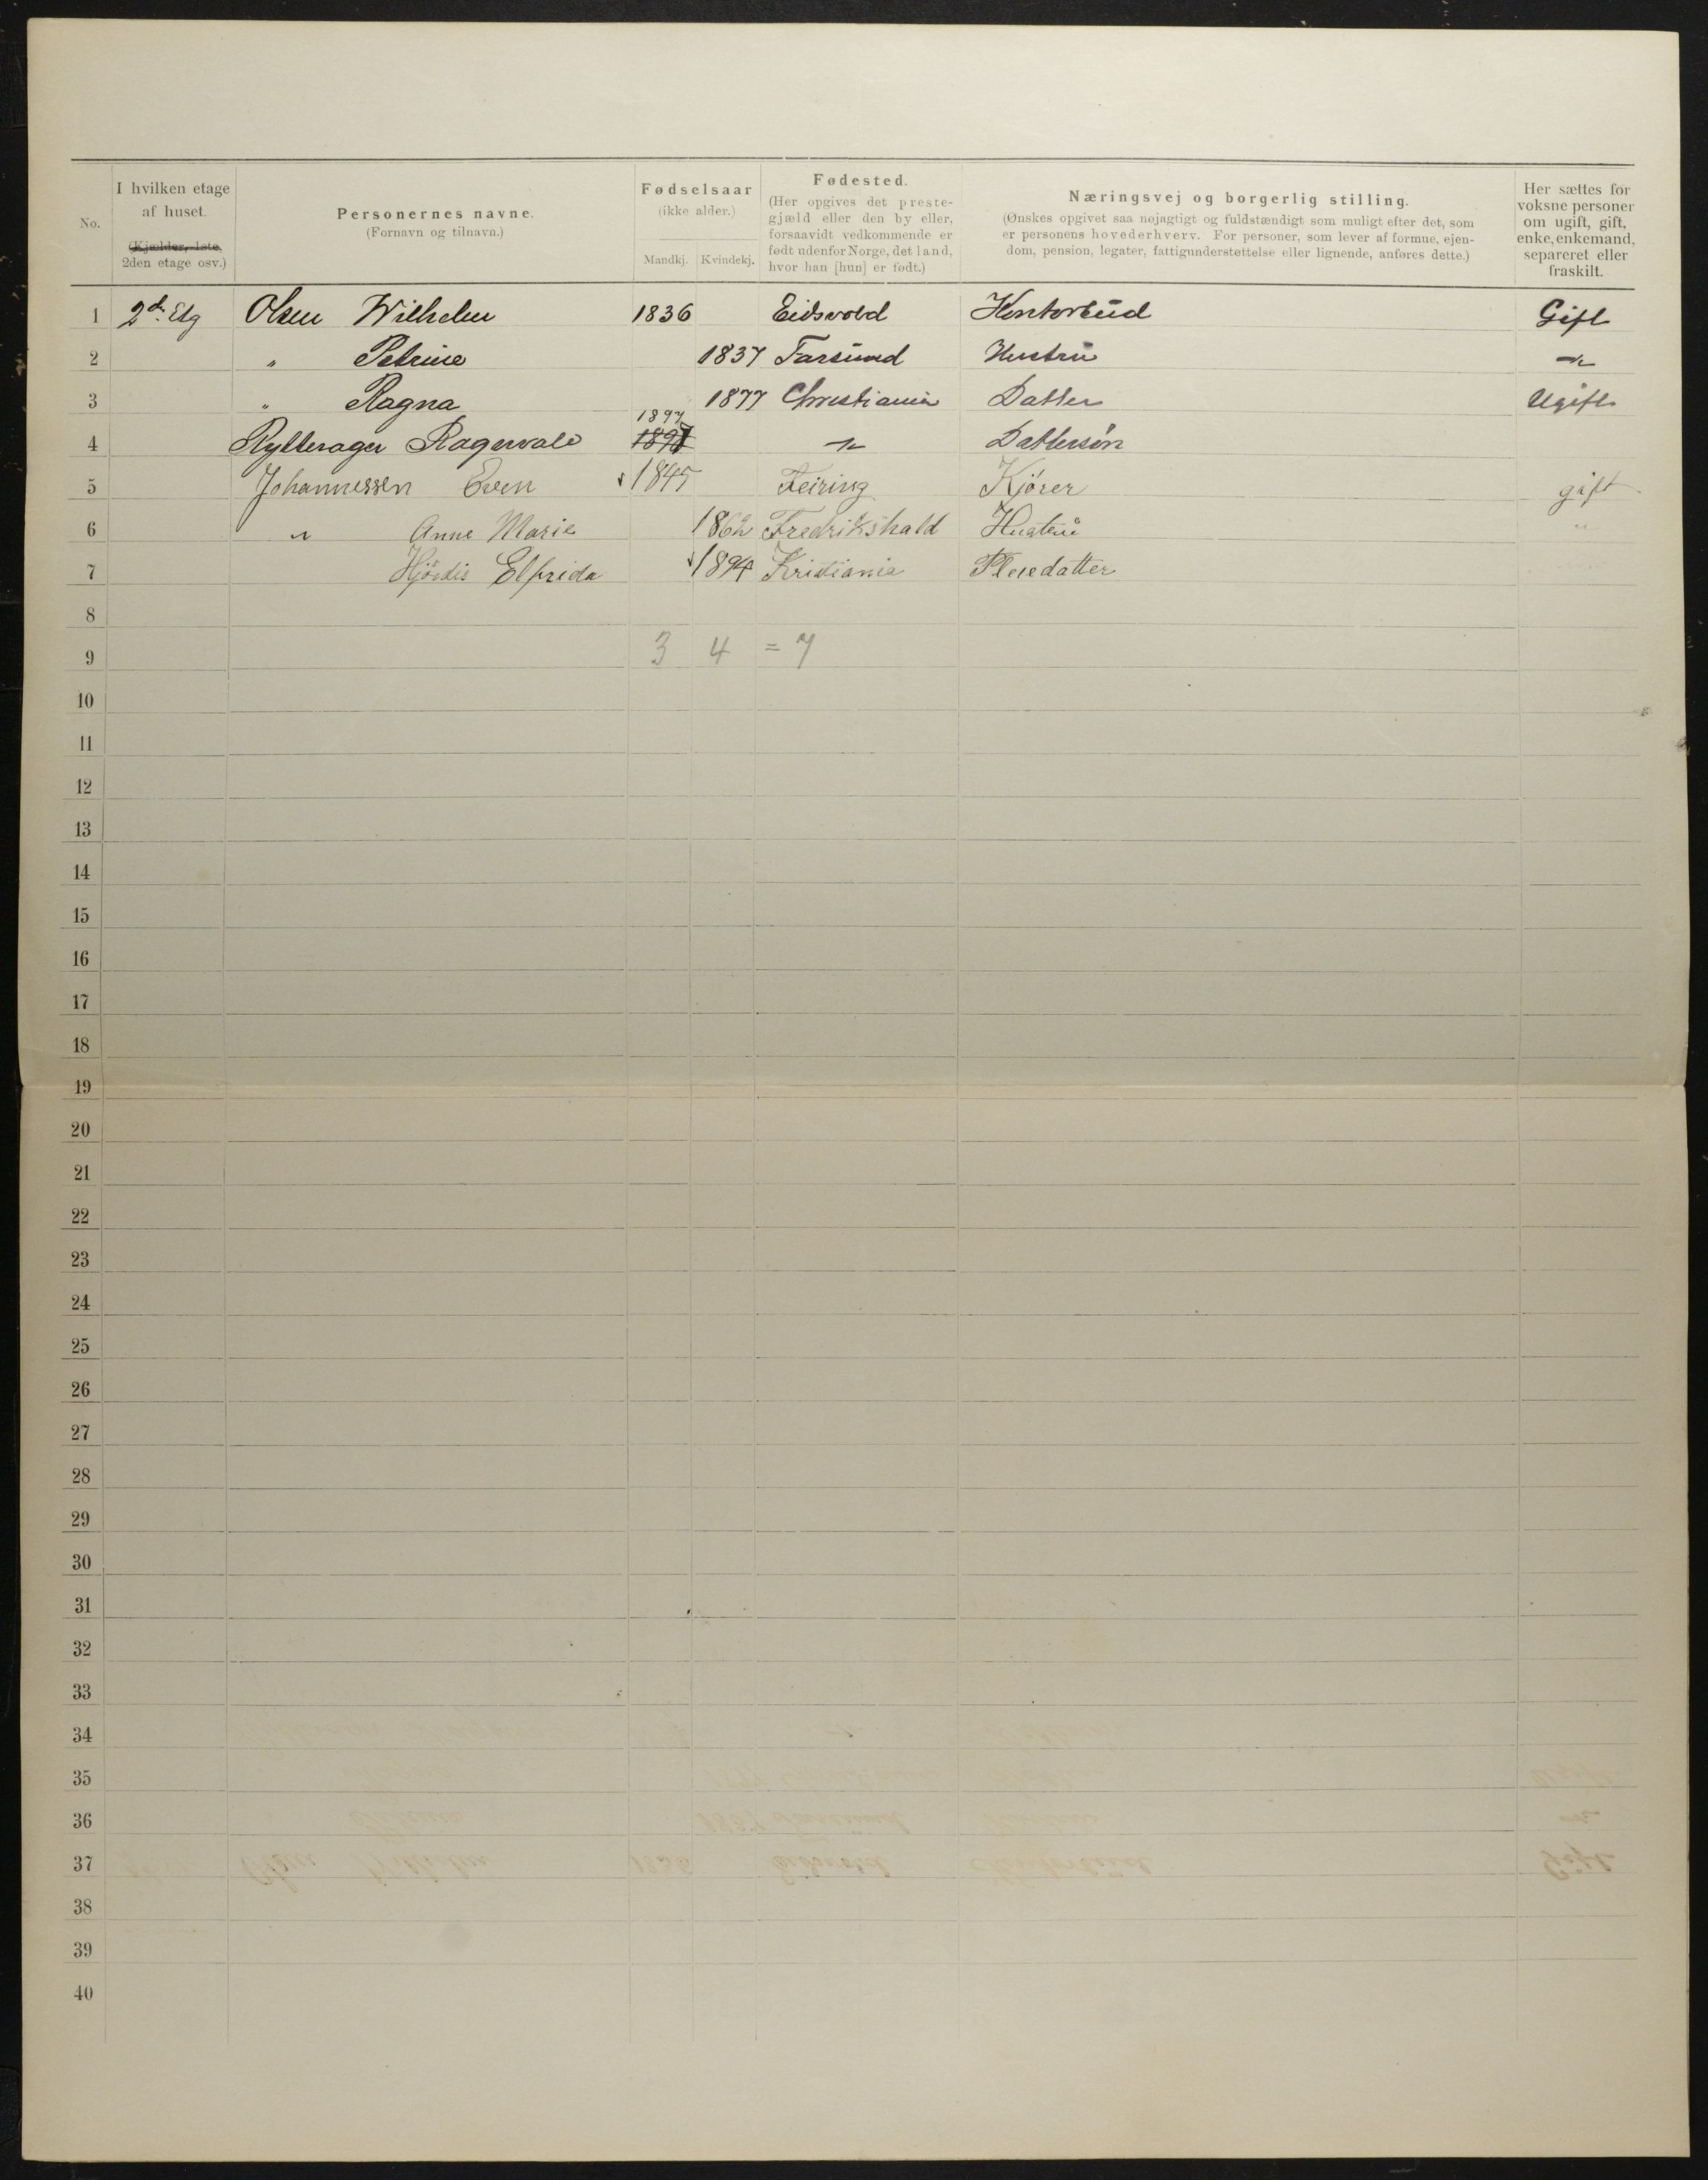 No.
I hvilken etage
af huset.
(Kjælder, 1ste,
2den etage osv.)
Personernes navne.
(Fornavn og tilnavn.)
Fødselsaar
(ikke alder.)
Mandkj.
Kvindekj.
Fødested.
(Her opgives det preste-
gjæld eller den by eller,
forsaavidt vedkommende er
født udenfor Norge, det land,
hvor han [hun] er født.)
Næringsvej og borgerlig stilling.
(Ønskes opgivet saa nøjagtigt og fuldstændigt som muligt efter det, som
er personens hovederhverv. For personer, som lever af formue, ejen-
dom, pension, legater, fattigunderstøttelse eller lignende, anføres dette.)
Her sættes for
voksne personer
om ugift, gift,
enke, enkemand,
separeret eller
fraskilt.
1 2d. Etg Olsen Wilhelm 1836 Eidsvold Kontorbud Gift
2 " Petrine 1837 Farsund Hustru "
3 " Ragna 1877 Christiania Datter Ugift
1897
4 Rytterager Ragnvald " Dattersøn
5 Johannessen Even 1845 Feiring Kjører gift
6 " Anne Marie 1862 Fredrikshald Hustru "
7 Hjørdis Elfrida 1894 Kristiania Pleiedatter
8
9 3 4 = 7
10
11
12
13
14
15
16
17
18
19
20
21
22
23
24
25
26
27
28
29
30
31
32
33
34
35
36
37
38
39
40